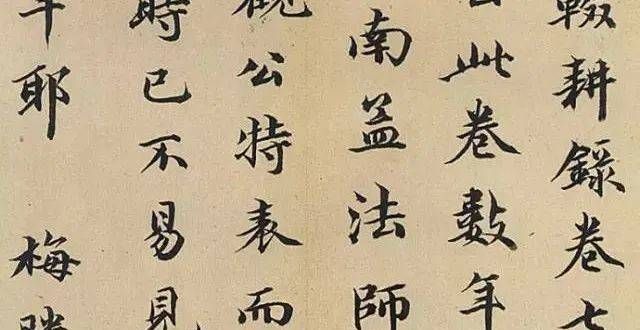 輟耕錄卷七
此卷數年
南益法師
觀公特表而
時已不易見
耶 梅